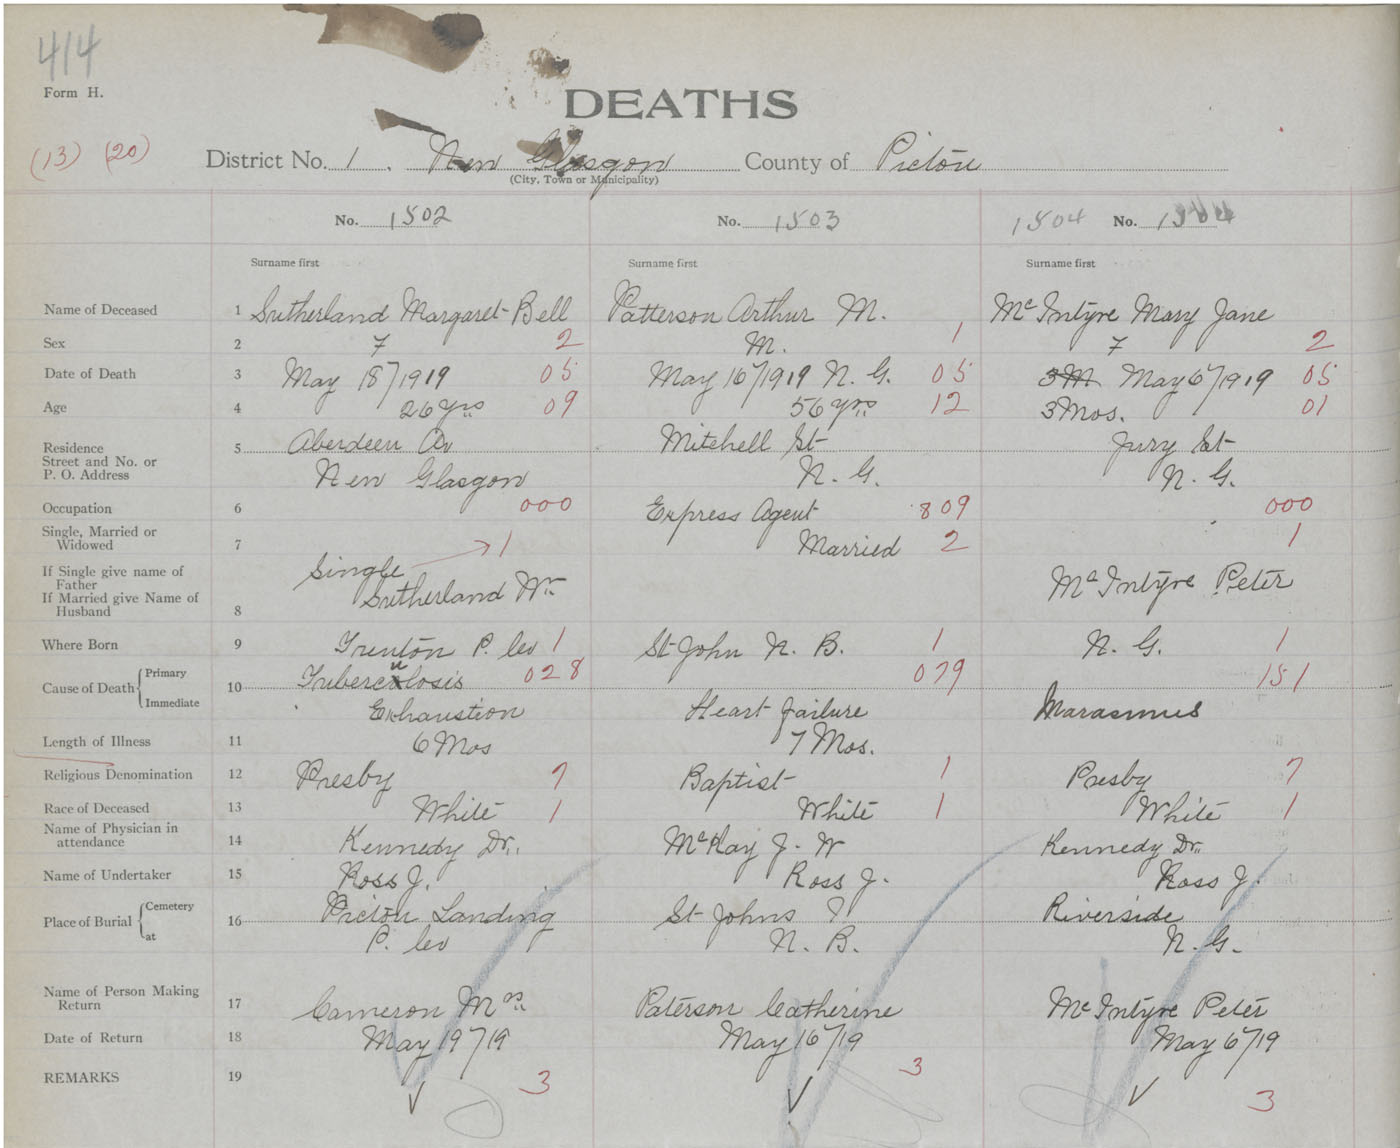 414
Form H.
DEATHS
(13) (20)
District No. 1. New Glasgow County of Pictou
(City, Town or Municipality)
No. 1502 No. 1503 1504 No. 1504
Surname first Surname first Surname first
Name of Deceased 1 Sutherland Margaret Bell Patterson Arthur M. McIntyre Mary Jane
Sex 2 F 2 M. 1 F 2
Date of Death 3 May 18/1919 05 May 16/1919 N. G. 05 3M May 6/1919 05
Age 4 26 yrs 09 56 yrs 12 3 Mos. 01
Residence 5 Aberdeen Av Mitchell St Jury St
Street and No. or
P. O. Address New Glasgow N. G. N. G.
Occupation 6 000 Express Agent 809 000
Single, Married or
Widowed 7 Single 1 Married 2 1
If Single give name of
Father
If Married give Name of
Husband 8 Sutherland Wm McIntyre Peter
Where Born 9 Trenton P. Co 1 St John N. B. 1 N. G. 1
Cause of Death Primary 10 Tuberculosis 028 079 151
Immediate Exhaustion Heart failure Marasmus
Length of Illness 11 6 Mos 7 Mos.
Religious Denomination 12 Presby 7 Baptist 1 Presby 7
Race of Deceased 13 White 1 White 1 White 1
Name of Physician in
attendance 14 Kennedy Dr. McKay J. W Kennedy Dr.
Name of Undertaker 15 Ross J. Ross J. Ross J.
Place of Burial Cemetery 16 Pictou Landing St Johns ? Riverside
at P. Co N. B. N. G.
Name of Person Making
Return 17 Cameron Mrs. Paterson Catherine McIntyre Peter
Date of Return 18 May 19/19 May 16/19 May 6/19
REMARKS 19 3 3 3